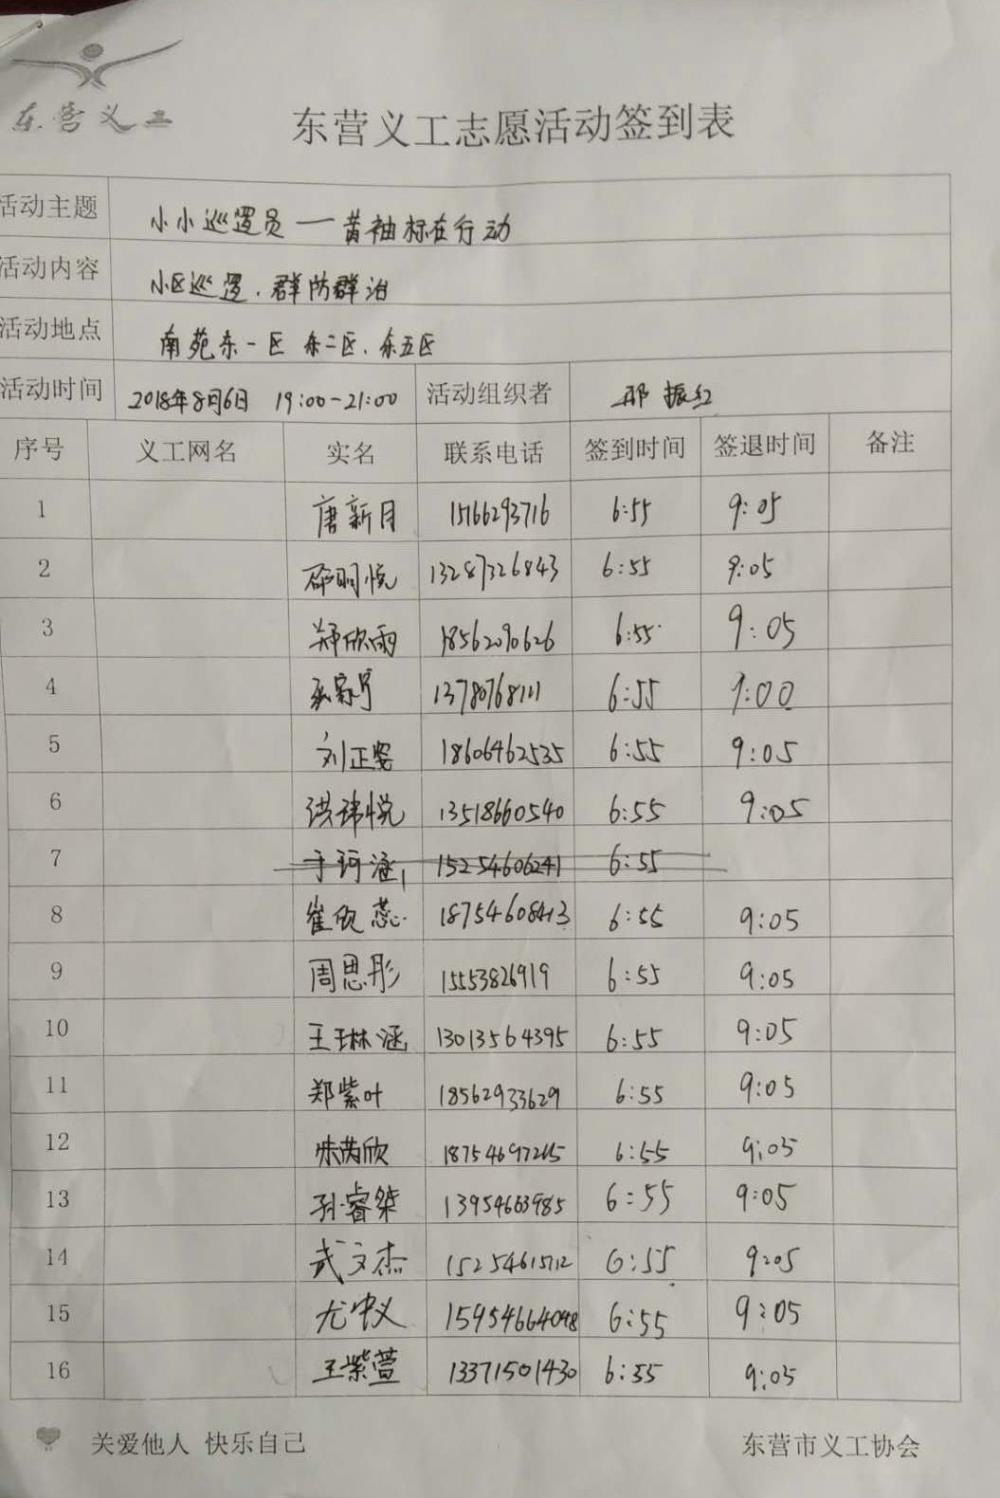 东营义工
东营义工志愿活动签到表
活动主题 小小巡逻员——黄袖标在行动
活动内容 小区巡逻.群防群治
活动地点 南苑东一区 东二区.东五区
活动时间 2018年8月6日 19:00-21:00 活动组织者 邢振红
序号 义工网名 实名 联系电话 签到时间 签退时间 备注
1 唐新月 15166293716 6:55 9:05
2 邵明悦 13287326843 6:55 9:05
3 郑欣雨 18562090626 6:55 9:05
4 13780768111 6:55 9:00
5 刘正雯 18606462535 6:55 9:05
6 洪玮悦 13518660540 6:55 9:05
7 于珂涵 15254606241 6:55
8 崔欣蕊 18754608413 6:55 9:05
9 周思彤 15553826919 6:55 9:05
10 王琳涵 13013564395 6:55 9:05
11 郑紫叶 18562933629 6:55 9:05
12 朱芮欣 6:55 9:05
13 孙睿桀 13954663985 6:55 9:05
14 武文杰 15254615712 6:55 9:05
15 尤中义 15954664098 6:55 9:05
16 王紫萱 13371501430 6:55 9:05
关爱他人 快乐自己 东营市义工协会